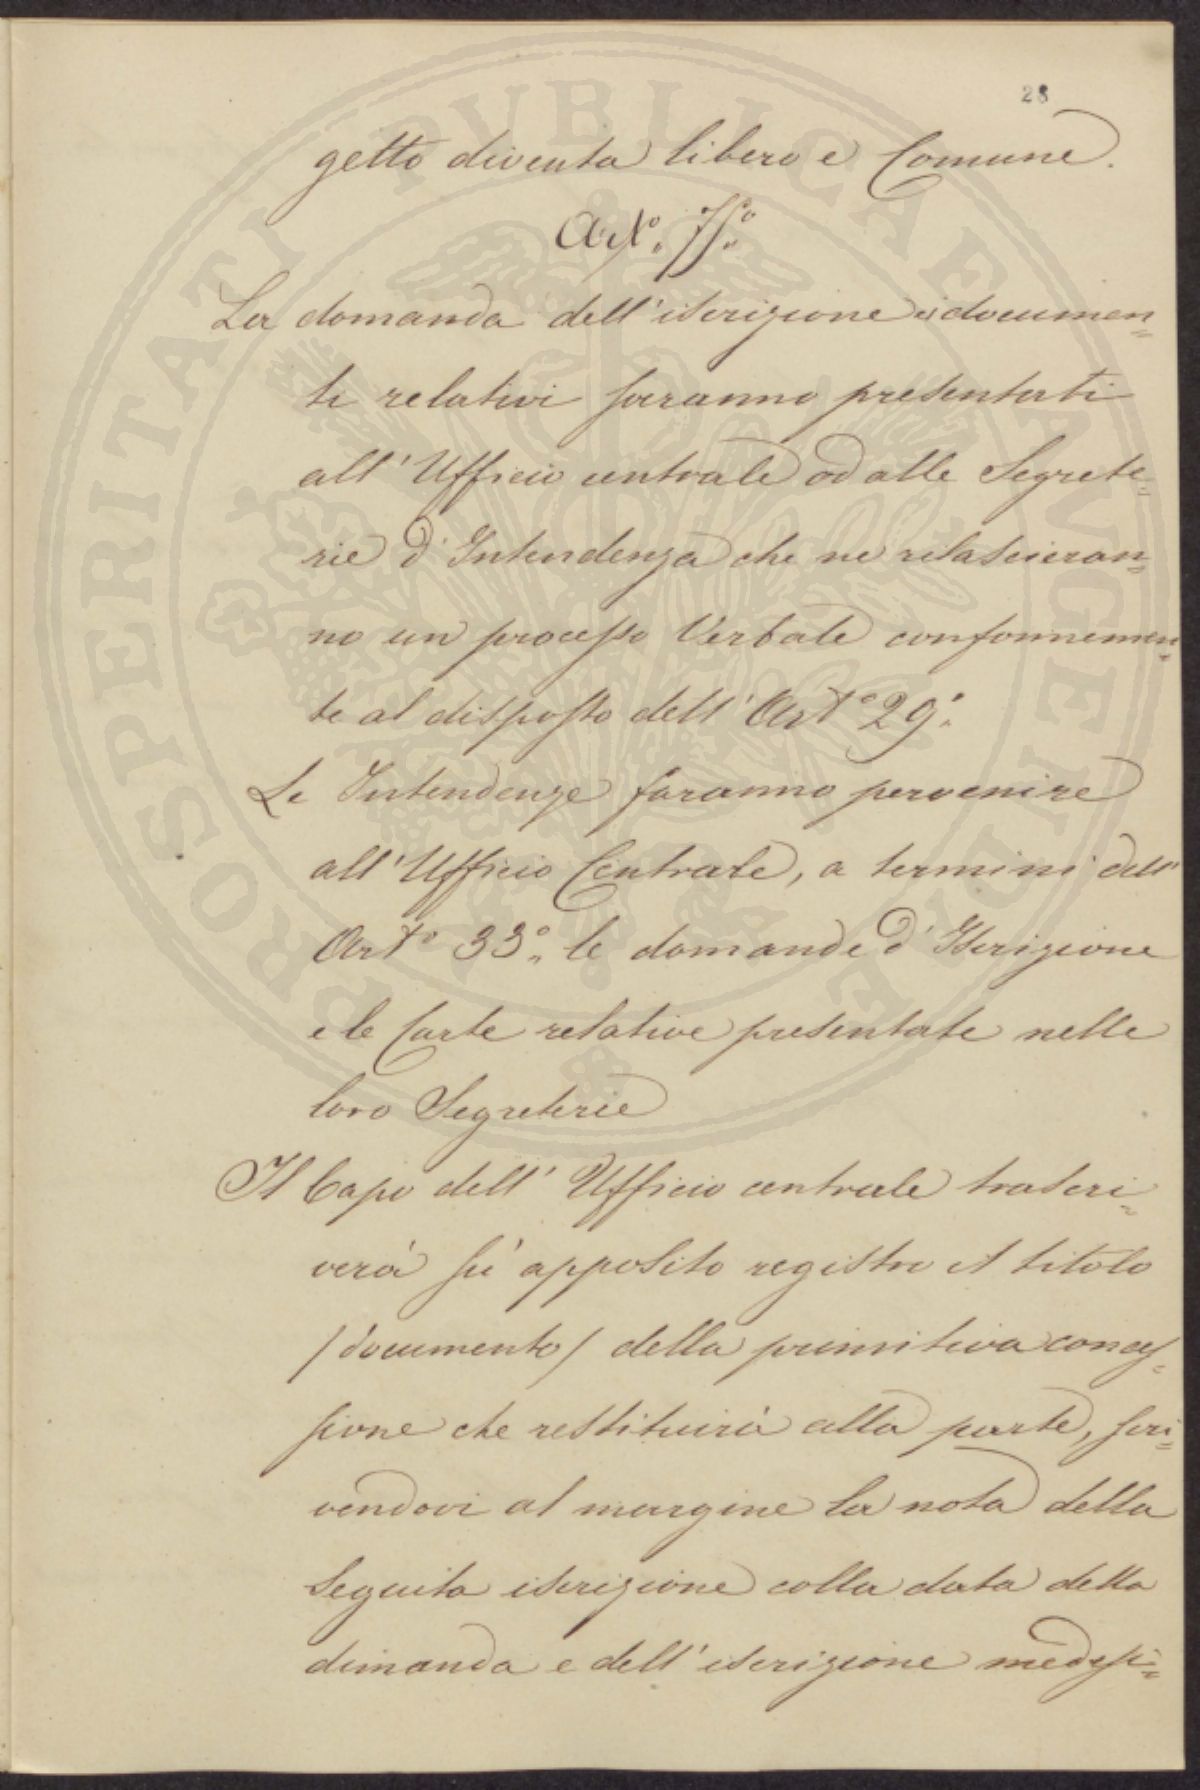 28
getto diventa libero e Comune.
Art.° 77.°
La domanda dell'iscrizione i documen=
ti relativi saranno presentati
all'Ufficio centrale od alle Segrete=
rie d'Intendenza che ne rilascieran=
no un processo Verbale conformemen=
te al disposto dell'Art° 29.°
Le Intendenze faranno pervenire
all'Ufficio Centrale, a termini dell'
Art° 33.° le domande d'Iscrizione
e le Carte relative presentate nelle
loro Segreterie
Il Capo dell'Ufficio centrale trascri=
verà sù apposito registro il titolo
/documento/ della primitiva conces=
sione che restituirà alla parte, scri=
vendovi al margine la nota della
seguita iscrizione colla data della
dimanda e dell'iscrizione medesi=
PROSPERITATI PUBLICAE AUGENDAE